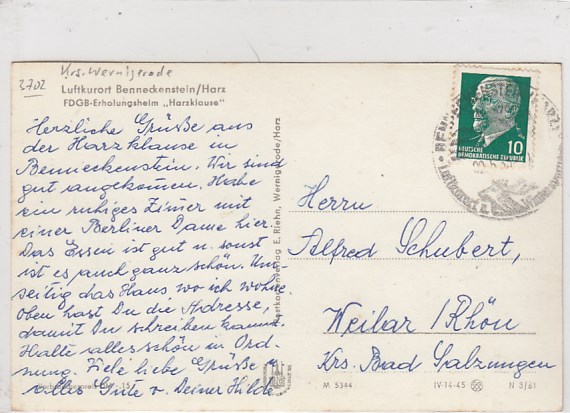 Krs. Wernigerode
3702
Luftkurort Benneckenstein/Harz
FDGB-Erholungsheim „Harzklause“
Herzliche Grüße aus
der Harzklause in
Benneckenstein. Wir sind
gut angekommen. Habe
ein ruhiges Zimer mit
einer Berliner Dame hier.
Das Essen ist gut u. sonst
ist es auch ganz schön. Um-
seitig das Haus wo ich wohne
oben hast Du die Adresse,
damit Du schreiben kannst.
Halte alles schön in Ord-
nung. Viele liebe Grüße u.
alles Gute v. Deiner Hilde
Postkartenverlag E. Riehn, Wernigerode/Harz
DEUTSCHE
DEMOKRATISCHE REPUBLIK
10
Luftkurort u.
Herrn
Alfred Schubert,
Weilar /Rhön
Krs. Bad Salzungen
M 5344
IV-14-45
N 3/61